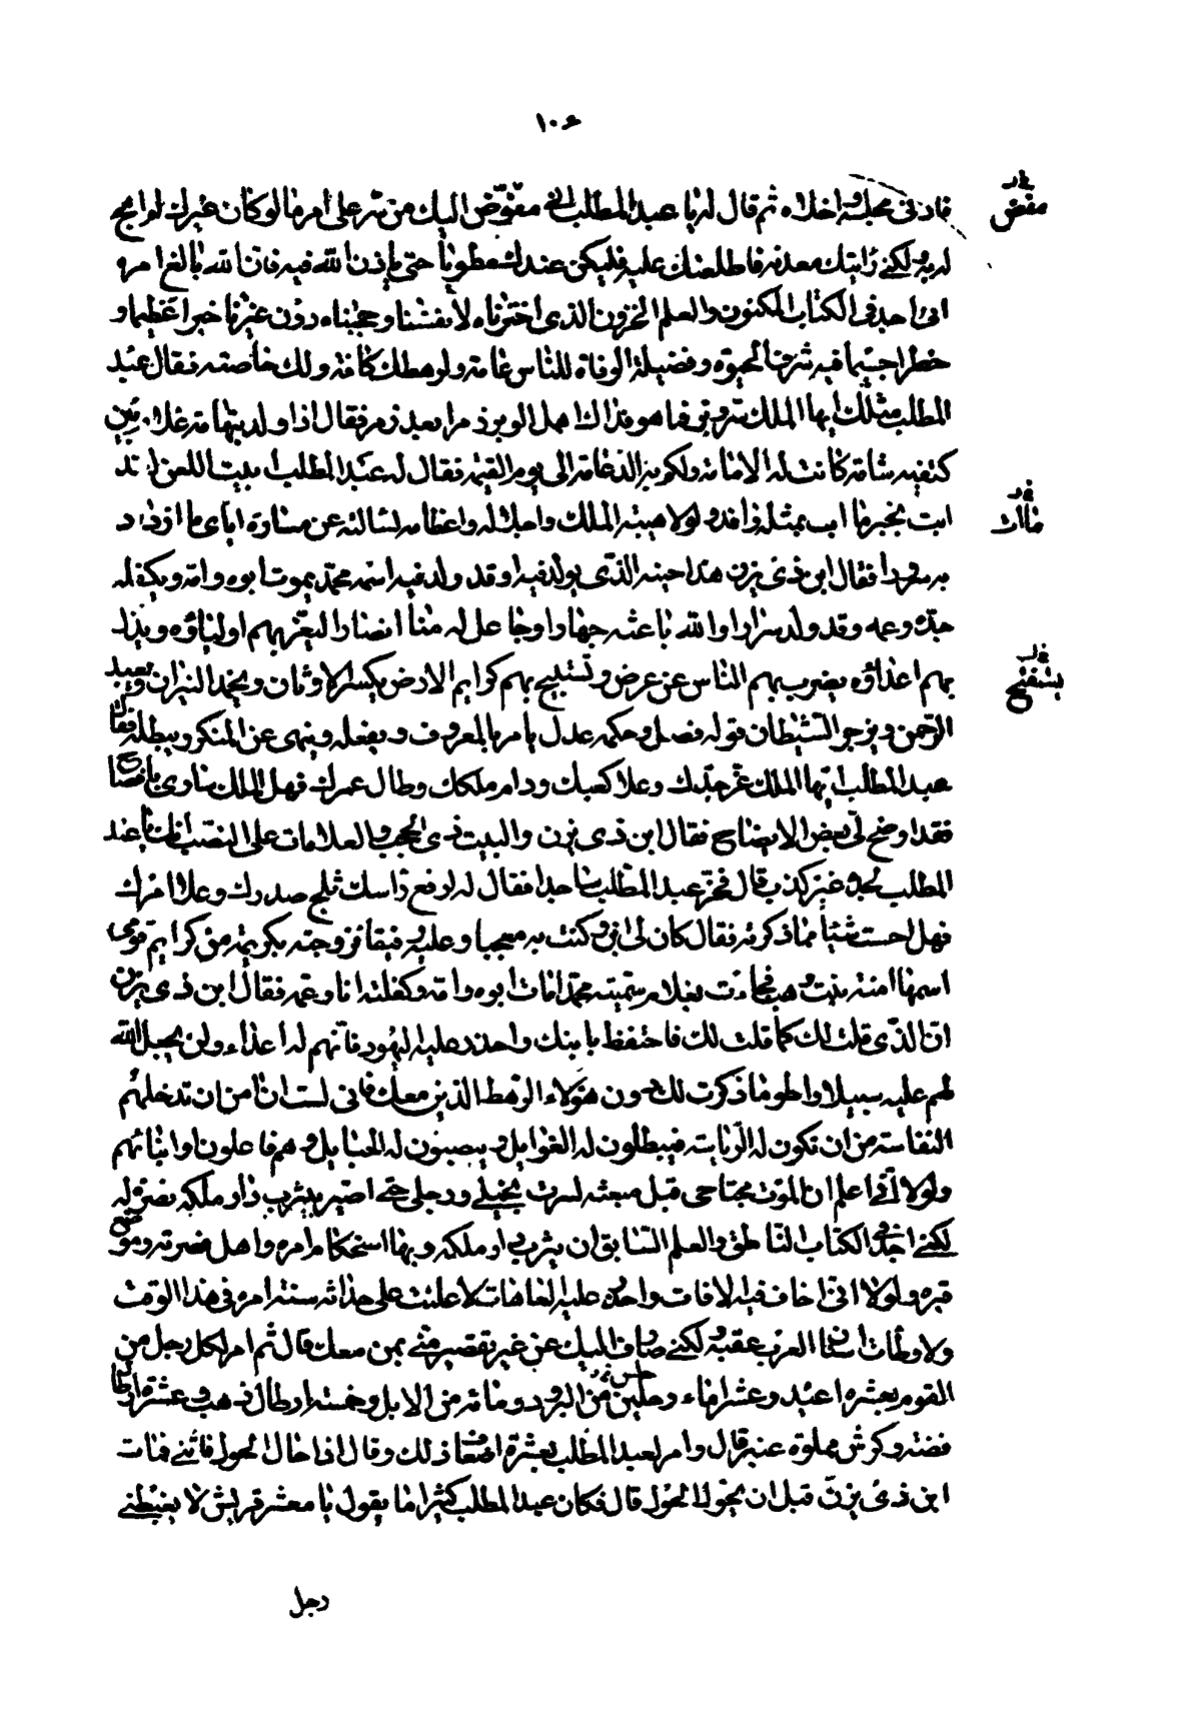 ١٠٤
فادنى مجلسه واخلاه ثم قال له يا عبد المطلب انى مفوض اليك من سر على امر ما لو كان غيرك لم ابح
له به ولكنى رايتك معدنه فاطلعتك عليه فليكن عندك مطويا حتى ياذن الله فيه فان الله بالغ امره
انى اجد فى الكتاب المكنون والعلم المخزون الذى اخترناه لانفسنا وحجبناه دون غيرنا خبرا عظيما و
خطرا جسيما فيه شرف الحيوة وفضيلة الوفاة للناس عامة ولرهطك كافة ولك خاصة فقال عبد
المطلب مثلك ايها الملك سر وبر فما هو فداك اهل الوبر زمرا بعد زمر فقال اذا ولد بتهامة غلام بين
كتفيه شامة كانت له الامامة ولكم به الدعامة الى يوم القيمة فقال له عبد المطلب ابيت اللعن لقد
ابت بخبر ما اب بمثله وافد ولولا هيبة الملك واجلاله واعظامه لسالته عن مساره اياى ما ازداد
به سرورا فقال ابن ذى يزن هذا حينه الذى يولد فيه او قد ولد فيه اسمه محمد يموت ابوه وامه ويكفله
جده وعمه وقد ولد سرارا والله باعثه جهارا وجاعل له منا انصارا ليعز بهم اولياؤه ويذل
بهم اعداؤه يضرب بهم الناس عن عرض وتستبيح بهم كرايم الارض يكسر الاوثان ويخمد النيران ويعبد
الرحمن ويزجر الشيطان قوله فصل وحكمه عدل يامر بالمعروف ويفعله وينهى عن المنكر ويبطله فقال
عبد المطلب ايها الملك عز جدك وعلا كعبك ودام ملكك وطال عمرك فهل الملك سارى بافصاح
فقد اوضح لى بعض الايضاح فقال ابن ذى يزن والبيت ذى الحجب والعلامات على النصب انك يا عبد
المطلب لجده غير كذب قال فخر عبد المطلب ساجدا فقال له ارفع راسك ثلج صدرك وعلا امرك
فهل احسست شيئا مما ذكرته فقال كان لى ابن وكنت به معجبا وعليه رفيقا فزوجته بكريمة من كرايم قومى
اسمها امنة بنت وهب فجاءت بغلام سميته محمدا مات ابوه وامه وكفلته انا وعمه فقال ابن ذى يزن
ان الذى قلت لك كما قلت لك فاحتفظ بابنك واحذر عليه اليهود فانهم له اعداء ولن يجعل الله
لهم عليه سبيلا واطو ما ذكرت لك دون هؤلاء الرهط الذين معك فانى لست امن ان تدخلهم
النفاسة من ان تكون له الرياسة فيطلبون له الغوايل وينصبون له الحبايل وهم فاعلون او ابناؤهم
ولولا انى اعلم ان الموت مجتاحى قبل مبعثه لسرت بخيلى ورجلى حتى اصير بيثرب دار ملكه نصرة له
لكنى اجد فى الكتاب الناطق والعلم السابق ان يثرب دار ملكه وبها استحكام امره واهل نصرته وموضع
قبره ولولا انى اخاف فيه الافات واحذر عليه العاهات لاعلنت على حداثة سنه امره فى هذا الوقت
ولاوطات اسنان العرب عقبه ولكنى صارف اليك عن غير تقصير منى بمن معك قال ثم امر لكل رجل من
القوم بعشرة اعبد وعشر اماء وحلتين من البرود ومائة من الابل وخمسة ارطال ذهب وعشرة ارطال
فضة وكرش مملوة عنبر قال وامر لعبد المطلب بعشرة اضعاف ذلك وقال اذا حال الحول فائتنى فمات
ابن ذى يزن قبل ان يحول الحول قال فكان عبد المطلب كثيرا ما يقول يا معشر قريش لا يغبطنى
رجل